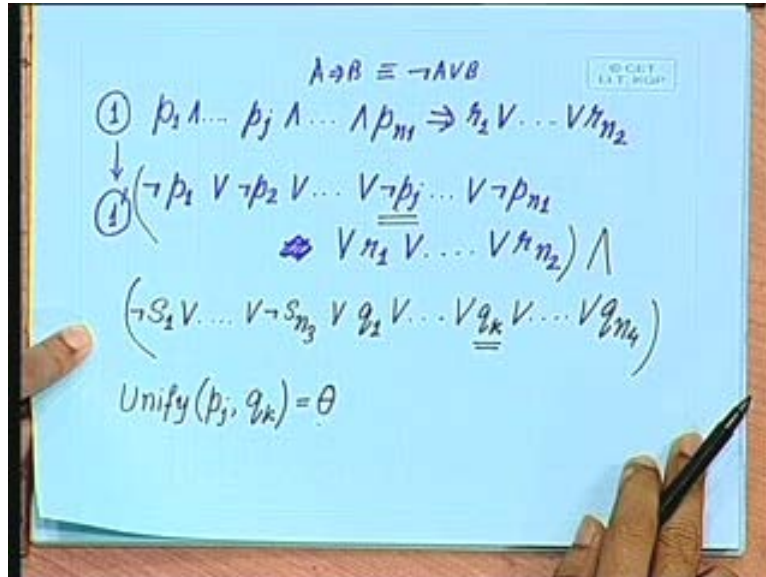 A ⇒ B ≡ ¬A ∨ B
© CET
I.I.T. KGP
① p₁ ∧ ... pⱼ ∧ ... ∧ pₙ₁ ⇒ r₁ ∨ ... ∨ rₙ₂
↓
①' (¬p₁ ∨ ¬p₂ ∨ ... ∨ ¬pⱼ ... ∨ ¬pₙ₁
∨ r₁ ∨ .... ∨ rₙ₂) ∧
(¬S₁ ∨ .... ∨ ¬Sₙ₃ ∨ q₁ ∨ ... ∨ qₖ ∨ .... ∨ qₙ₄)
Unify(pⱼ, qₖ) = θ